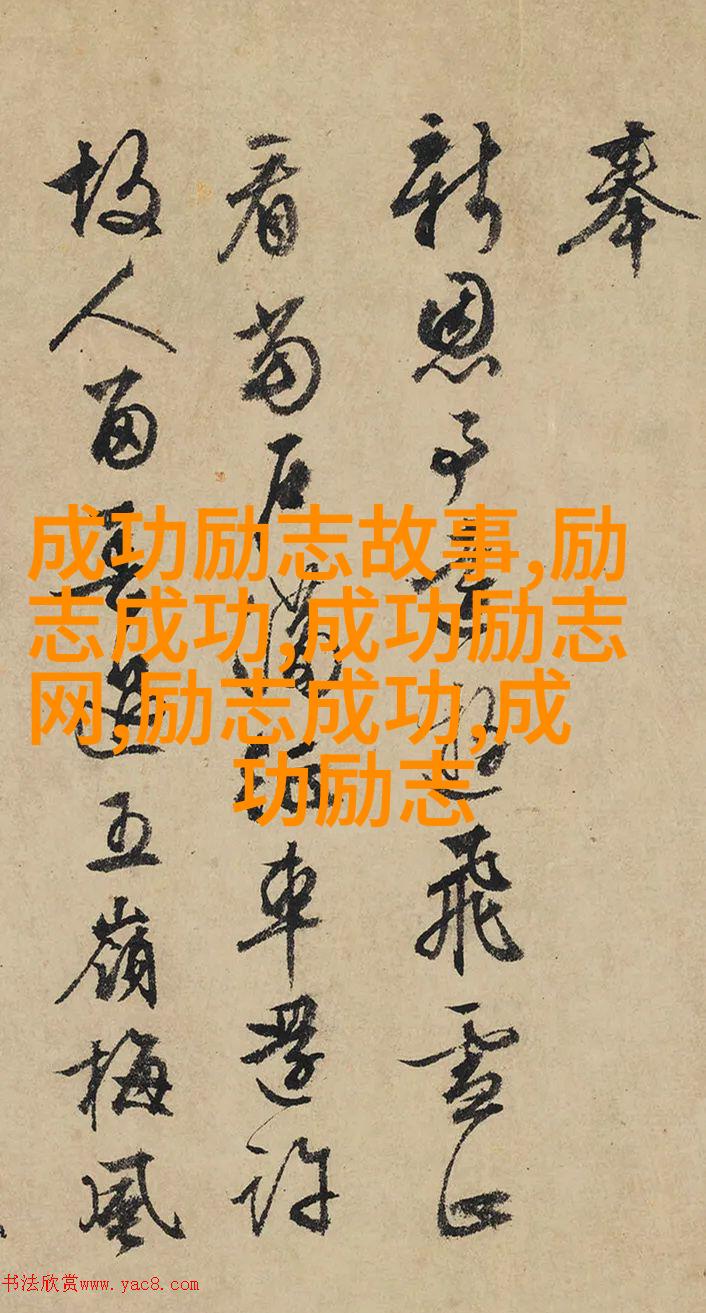 奉
新恩飛雪
看車還許
故人留過五嶺梅風
成功励志故事,励
志成功,成功励志
网,励志成功,成
功励志
书法欣赏www.yac8.com